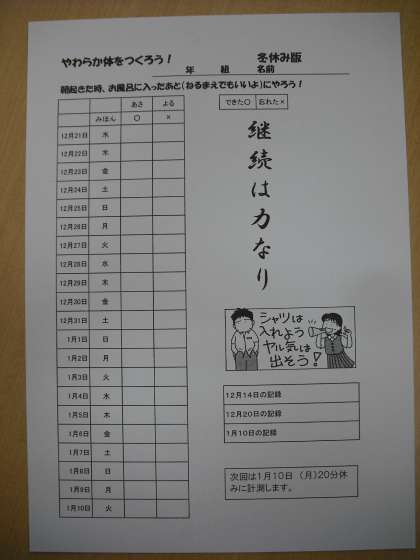 やわらか体をつくろう！ 冬休み版
年 組 名前
朝起きた時、お風呂に入ったあと(ねるまえでもいいよ)にやろう！
できた○
あさ よる
みほん ○ ×
12月21日 水
12月22日 木
12月23日 金
12月24日 土
12月25日 日
12月26日 月
12月27日 火
12月28日 水
12月29日 木
12月30日 金
12月31日 土
1月1日 日
1月2日 月
1月3日 火
1月4日 水
1月5日 木
1月6日 金
1月7日 土
1月8日 日
1月9日 月
1月10日 火
継続は力なり
シャツは
入れよう
ヤル気は
出そう！
12月14日の記録
12月20日の記録
1月10日の記録
次回は1月10日（月)20分休
みに計測します。